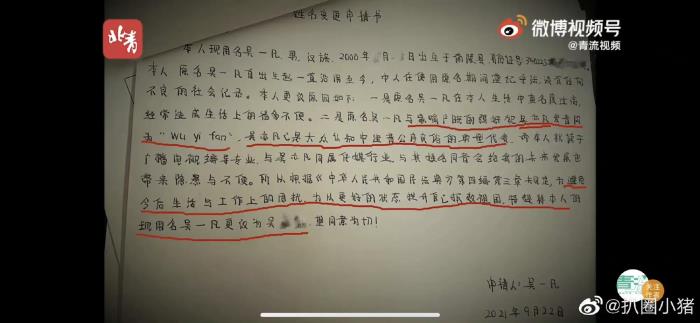 北青
微博视频号
@青流视频
姓名变更申请书
本人现用名吴一凡,男,汉族,2000年 月 日出生于南陵县,身份证号340223
本人原名吴一凡自出生起一直沿用至今,本人在使用原名期间遵纪守法,没有任何
不良的社会记录。本人更改原因如下:一是原名吴一凡在本人生活中重名较多,
经常造成生活上的诸多不便。二是原名吴一凡与 嫌疑犯吴亦凡发音同
为“wu yi fan”,吴亦凡已是大众认知中违背公序良俗的典型代表,而本人就读于
广播电视编导专业,与吴亦凡同属传媒行业,与其姓名同音会给我的未来发展也
带来隐患与不便。所以根据《中华人民共和国民法典》第四编第三章规定,为避免
今后生活与工作上的困扰,为以更好的状态提升自己报效祖国,特提将本人的
现用名吴一凡更改为吴 ,望同意为切!
申请人:吴一凡
2021年9月22日
@扒圈小猪